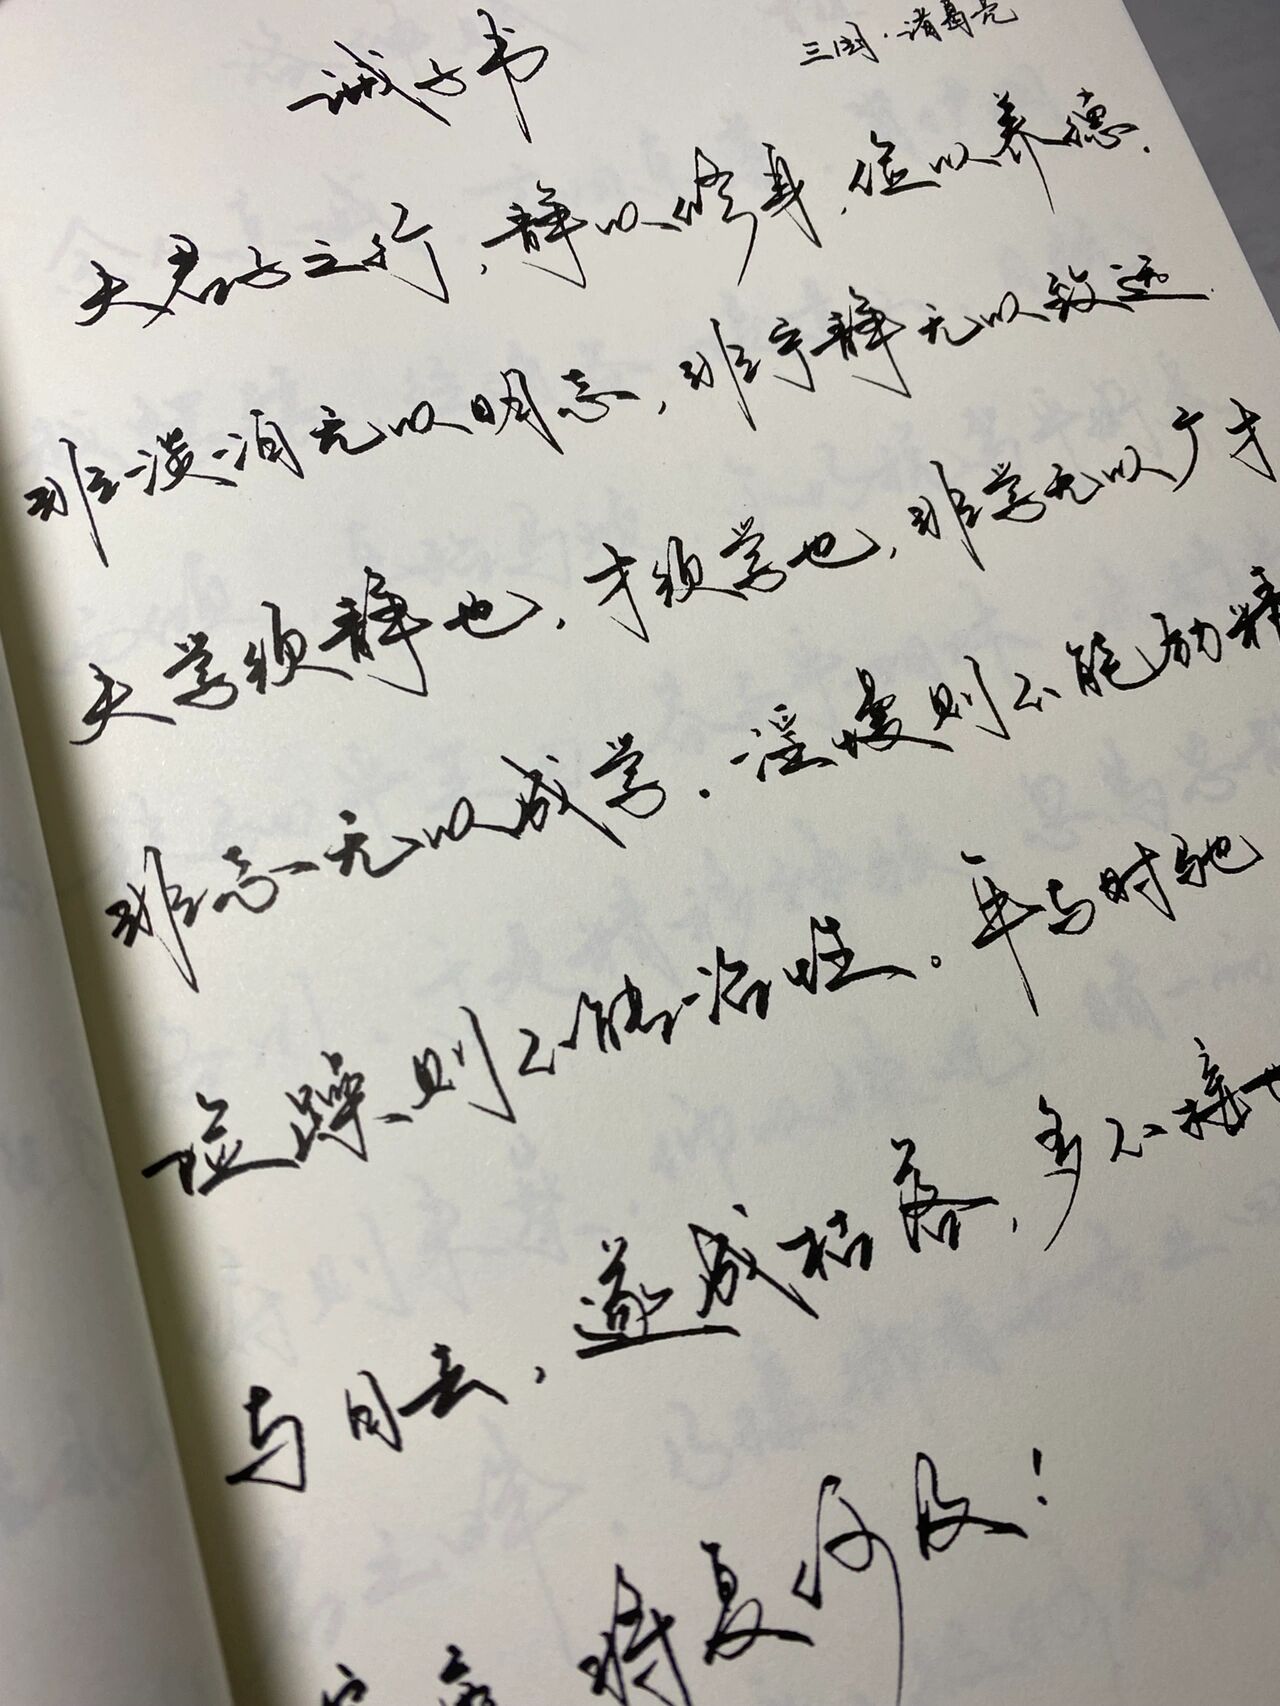 诫子书
三国·诸葛亮
夫君子之行，静以修身，俭以养德。
非淡泊无以明志，非宁静无以致远。
夫学须静也，才须学也，非学无以广才
非志无以成学。淫慢则不能励精
险躁则不能治性。年与时驰
与日去，遂成枯落，多不接世
将复何及！